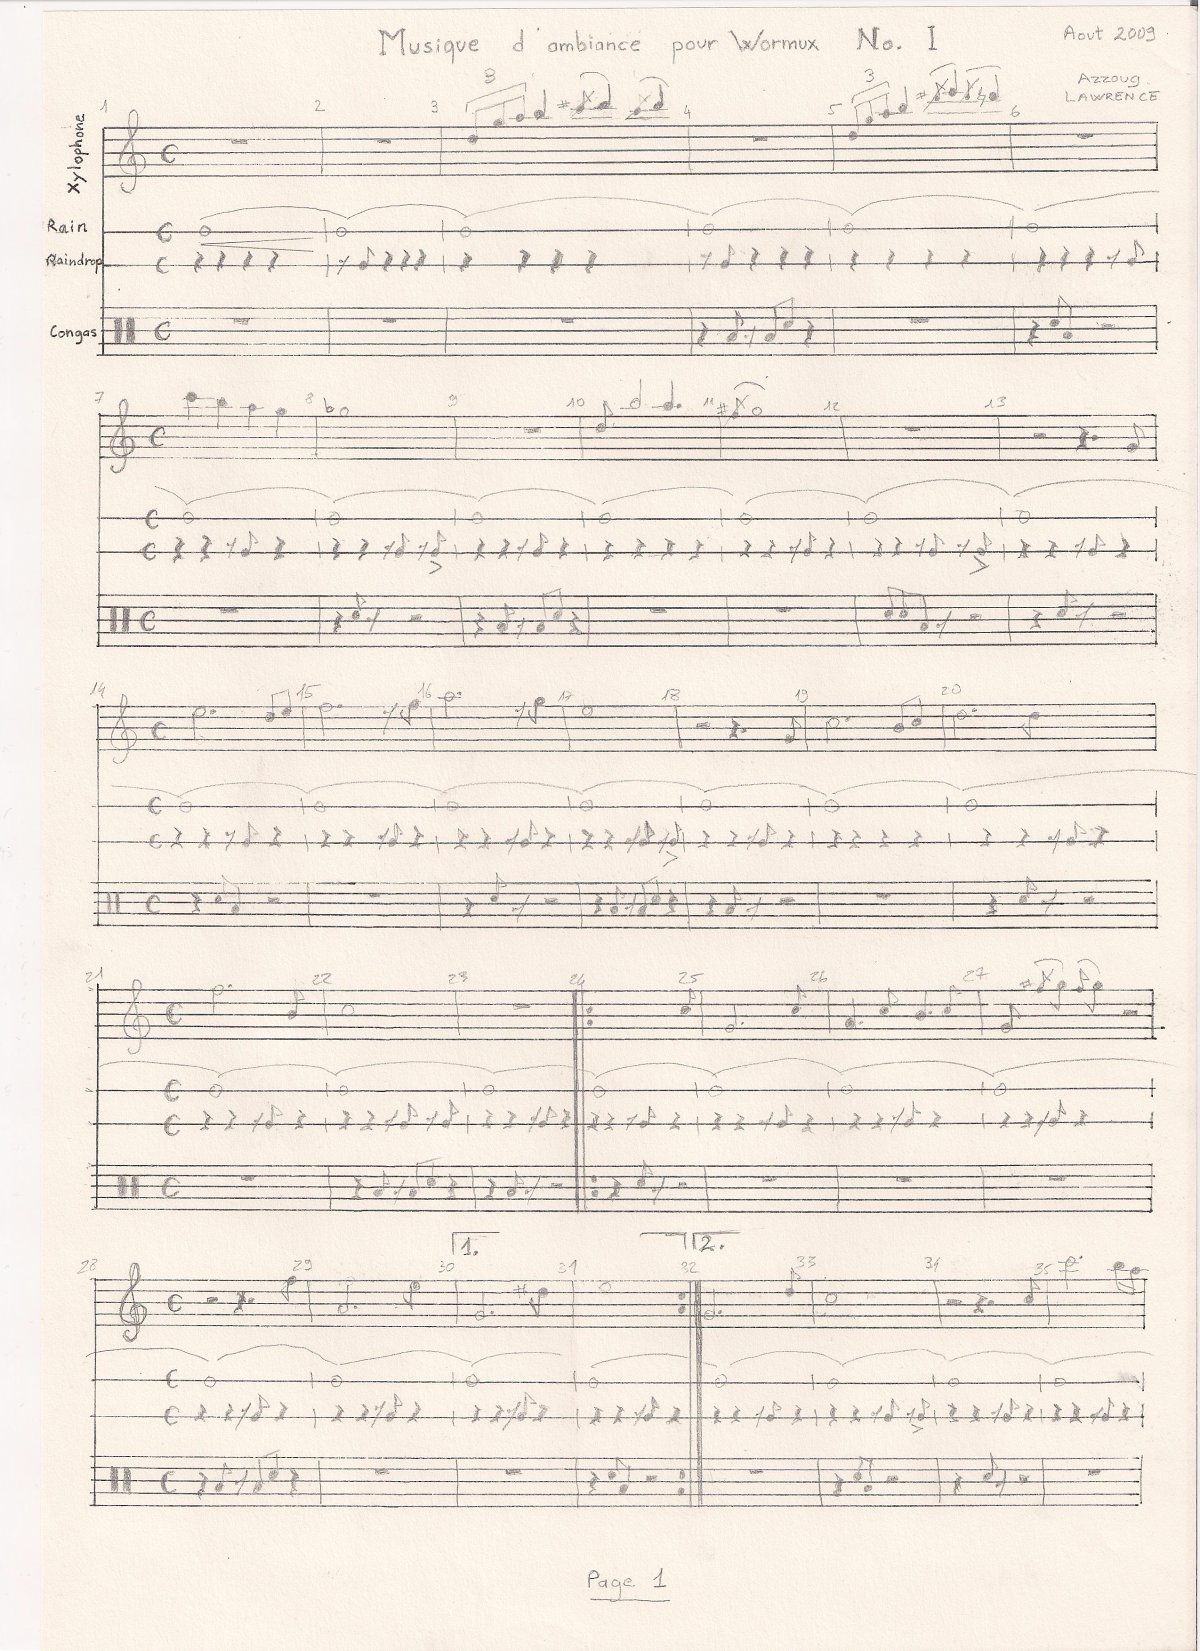 Musique d'ambiance pour Wormux No. I
Aout 2009
Azzoug
LAWRENCE
3
3
1 2 3 4 5 6
Xylophone
Rain
Raindrop
Congas
7 8 9 10 11 12 13
14 15 16 17 18 19 20
21 22 23 24 25 26 27
1. 2.
28 29 30 31 32 33 34 35
Page 1